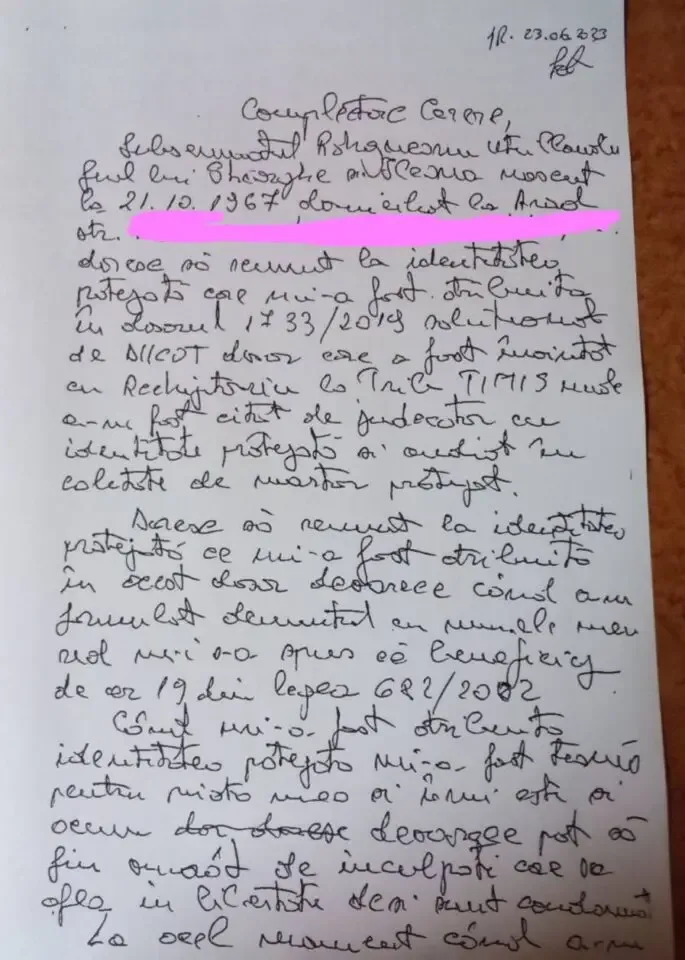 JR. 23.06.2023
Completare Cerere,
Subsemnatul
fiul lui Gheorghe si Ileana nascut
la 21.10.1967 domiciliat la Arad
str.
doresc să renunt la identitatea
protejată care mi-a fost atribuita
în dosarul 1733/2019 solutionat
de DIICOT dosar care a fost înaintat
cu Rechizitoriu la Trib TIMIS unde
a-m fost citat de judecator cu
identitate protejată si audiat în
calitate de martor protejat.
Doresc să renunt la identitatea
protejată ce mi-a fost atribuită
în acest dosar deoarece cônd a-m
formulat denuntul cu numele meu
real mi-i s-a spus că beneficiez
de ar 19 din legea 682/2002
Cônd mi-a fost atribuita
identitatea protejata mi-a fost teamă
pentru viata mea si îmi este si
acum dar doresc deoarece pot să
fiu omorôt de inculpati care se
afla in libertate desi sunt condamnati
La acel moment cônd a-m